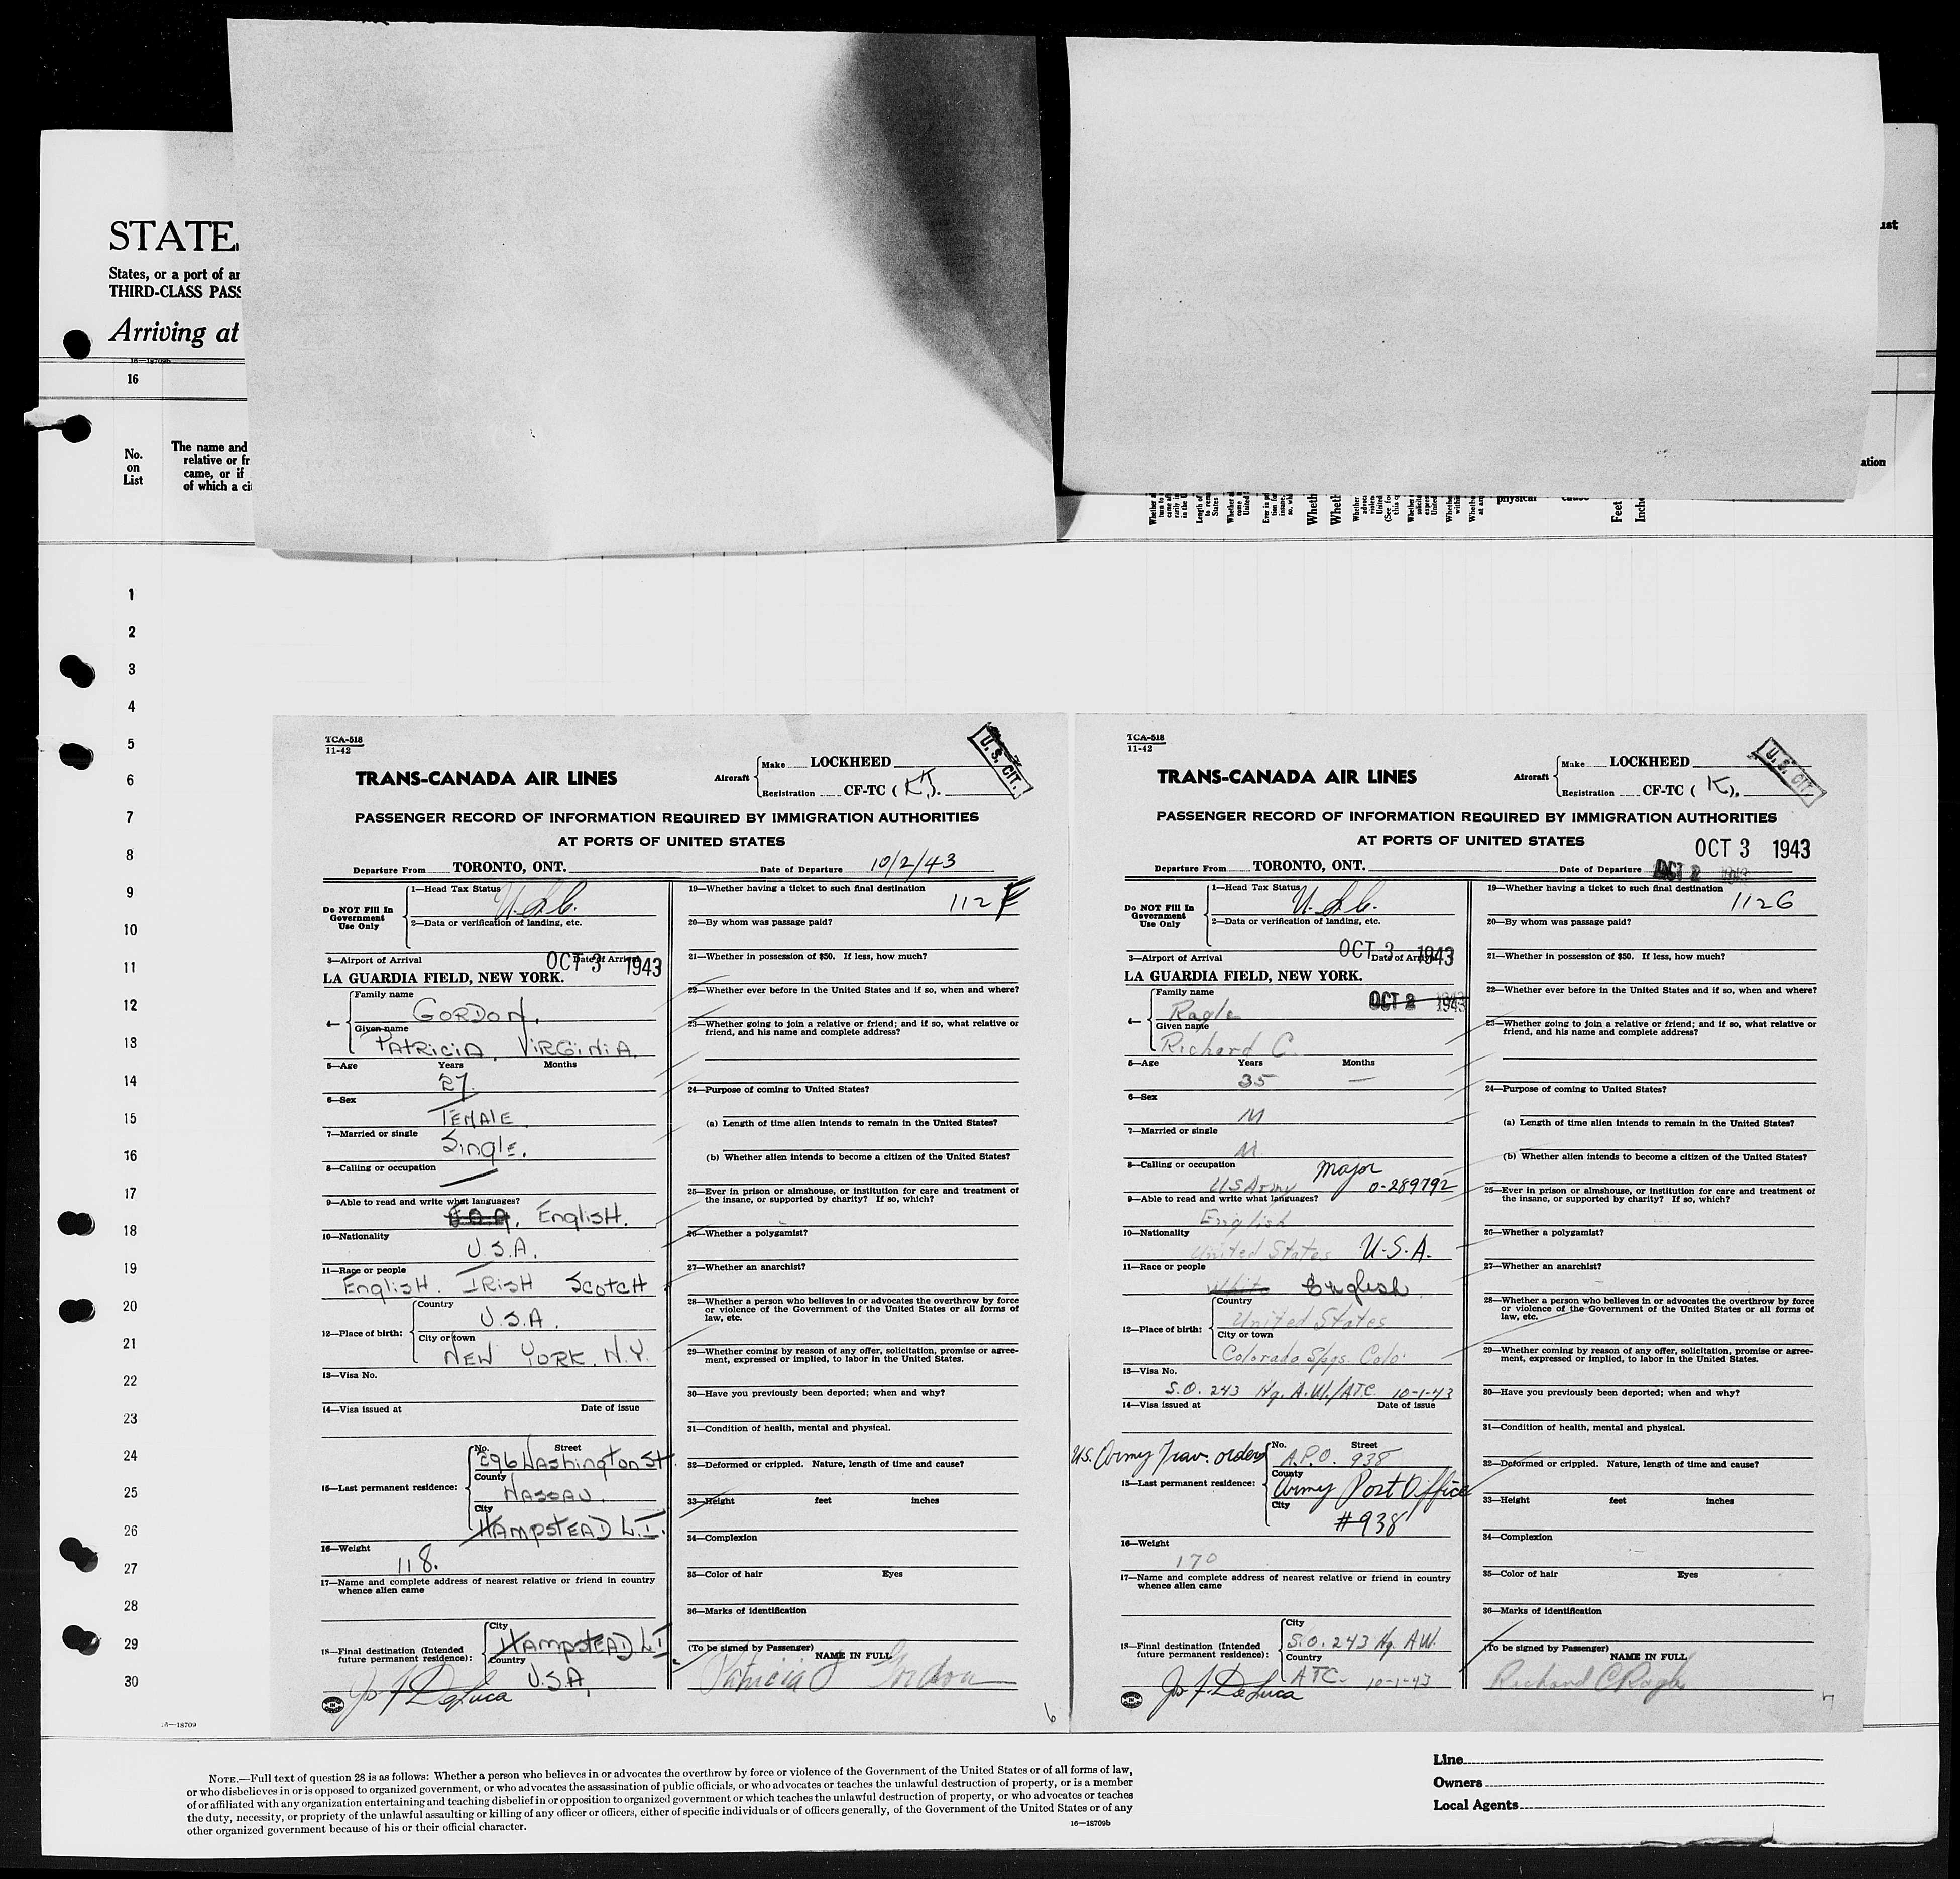 STATE
States, or a port of
THIRD-CLASS
Arriving at
16—18709b
16
No.
on
List
The name and
relative or
came, or if
of which a
ation
physical
cause
Feet
1
2
3
4
5
6
7
8
9
10
11
12
13
14
15
16
17
18
19
20
21
22
23
24
25
26
27
28
29
30
TCA-518
11-42
TRANS-CANADA AIR LINES
Aircraft
Make LOCKHEED
Registration CF-TC (K).
U.S. CIT.
PASSENGER RECORD OF INFORMATION REQUIRED BY IMMIGRATION AUTHORITIES
AT PORTS OF UNITED STATES
Departure From TORONTO, ONT. Date of Departure 10/2/43
Do NOT Fill In
Government
Use Only
1—Head Tax Status
2—Data or verification of landing, etc.
3—Airport of Arrival Date of Arrival
OCT 3 1943
LA GUARDIA FIELD, NEW YORK.
4—
Family name
GORDON.
Given name
PATRICIA. VIRGINIA.
5—Age Years Months
27.
6—Sex
FEMALE
7—Married or single
Single.
8—Calling or occupation
—
9—Able to read and write what languages?
English.
10—Nationality
U.S.A.
11—Race or people
English. IRISH SCOTCH
12—Place of birth:
Country
U.S.A.
City or town
NEW YORK. N.Y.
13—Visa No.
14—Visa issued at Date of issue
15—Last permanent residence:
No. Street
Washington St.
County
NASSAU.
City
HAMPSTEAD L.I.
16—Weight
118.
17—Name and complete address of nearest relative or friend in country
whence alien came
18—Final destination (Intended
future permanent residence):
City
HAMPSTEAD L.I
Country
U.S.A.
Jos J. DeLuca
19—Whether having a ticket to such final destination
20—By whom was passage paid?
21—Whether in possession of $50. If less, how much?
22—Whether ever before in the United States and if so, when and where?
23—Whether going to join a relative or friend; and if so, what relative or
friend, and his name and complete address?
24—Purpose of coming to United States?
(a) Length of time alien intends to remain in the United States?
(b) Whether alien intends to become a citizen of the United States?
25—Ever in prison or almshouse, or institution for care and treatment of
the insane, or supported by charity? If so, which?
26—Whether a polygamist?
27—Whether an anarchist?
28—Whether a person who believes in or advocates the overthrow by force
or violence of the Government of the United States or all forms of
law, etc.
29—Whether coming by reason of any offer, solicitation, promise or agree-
ment, expressed or implied, to labor in the United States.
30—Have you previously been deported; when and why?
31—Condition of health, mental and physical.
32—Deformed or crippled. Nature, length of time and cause?
33—Height feet inches
34—Complexion
35—Color of hair Eyes
36—Marks of identification
(To be signed by Passenger) NAME IN FULL
Patricia Gordon
6
TCA-518
11-42
TRANS-CANADA AIR LINES
Aircraft
Make LOCKHEED
Registration CF-TC (K).
U.S. CIT.
PASSENGER RECORD OF INFORMATION REQUIRED BY IMMIGRATION AUTHORITIES
AT PORTS OF UNITED STATES
OCT 3 1943
Departure From TORONTO, ONT. Date of Departure OCT 2 1943
Do NOT Fill In
Government
Use Only
1—Head Tax Status
2—Data or verification of landing, etc.
3—Airport of Arrival Date of Arrival
OCT 3 1943
LA GUARDIA FIELD, NEW YORK.
OCT 2 1943
4—
Family name
Ragle
Given name
Richard C.
5—Age Years Months
35 —
6—Sex
M
7—Married or single
M
8—Calling or occupation
US Army Major O-289792
9—Able to read and write what languages?
English
10—Nationality
United States U.S.A.
11—Race or people
White English
12—Place of birth:
Country
United States
City or town
Colorado Spgs. Colo.
13—Visa No.
S.O. 243 Hq. A.W./ATC 10-1-43
14—Visa issued at Date of issue
US. Army Trav. orders
15—Last permanent residence:
No. Street
A.P.O. 938
County
Army Post Office
City
#938
16—Weight
170
17—Name and complete address of nearest relative or friend in country
whence alien came
18—Final destination (Intended
future permanent residence):
City
S.O. 243 Hq. AW.
Country
ATC- 10-1-43
Jos J. DeLuca
19—Whether having a ticket to such final destination
20—By whom was passage paid?
21—Whether in possession of $50. If less, how much?
22—Whether ever before in the United States and if so, when and where?
23—Whether going to join a relative or friend; and if so, what relative or
friend, and his name and complete address?
24—Purpose of coming to United States?
(a) Length of time alien intends to remain in the United States?
(b) Whether alien intends to become a citizen of the United States?
25—Ever in prison or almshouse, or institution for care and treatment of
the insane, or supported by charity? If so, which?
26—Whether a polygamist?
27—Whether an anarchist?
28—Whether a person who believes in or advocates the overthrow by force
or violence of the Government of the United States or all forms of
law, etc.
29—Whether coming by reason of any offer, solicitation, promise or agree-
ment, expressed or implied, to labor in the United States.
30—Have you previously been deported; when and why?
31—Condition of health, mental and physical.
32—Deformed or crippled. Nature, length of time and cause?
33—Height feet inches
34—Complexion
35—Color of hair Eyes
36—Marks of identification
(To be signed by Passenger) NAME IN FULL
Richard C Ragle
7
16—18709
NOTE.—Full text of question 28 is as follows: Whether a person who believes in or advocates the overthrow by force or violence of the Government of the United States or of all forms of law,
or who disbelieves in or is opposed to organized government, or who advocates the assassination of public officials, or who advocates or teaches the unlawful destruction of property, or is a member
of or affiliated with any organization entertaining and teaching disbelief in or opposition to organized government or which teaches the unlawful destruction of property, or who advocates or teaches
the duty, necessity, or propriety of the unlawful assaulting or killing of any officer or officers, either of specific individuals or of officers generally, of the Government of the United States or of any
other organized government because of his or their official character.
16—18709b
Line
Owners
Local Agents